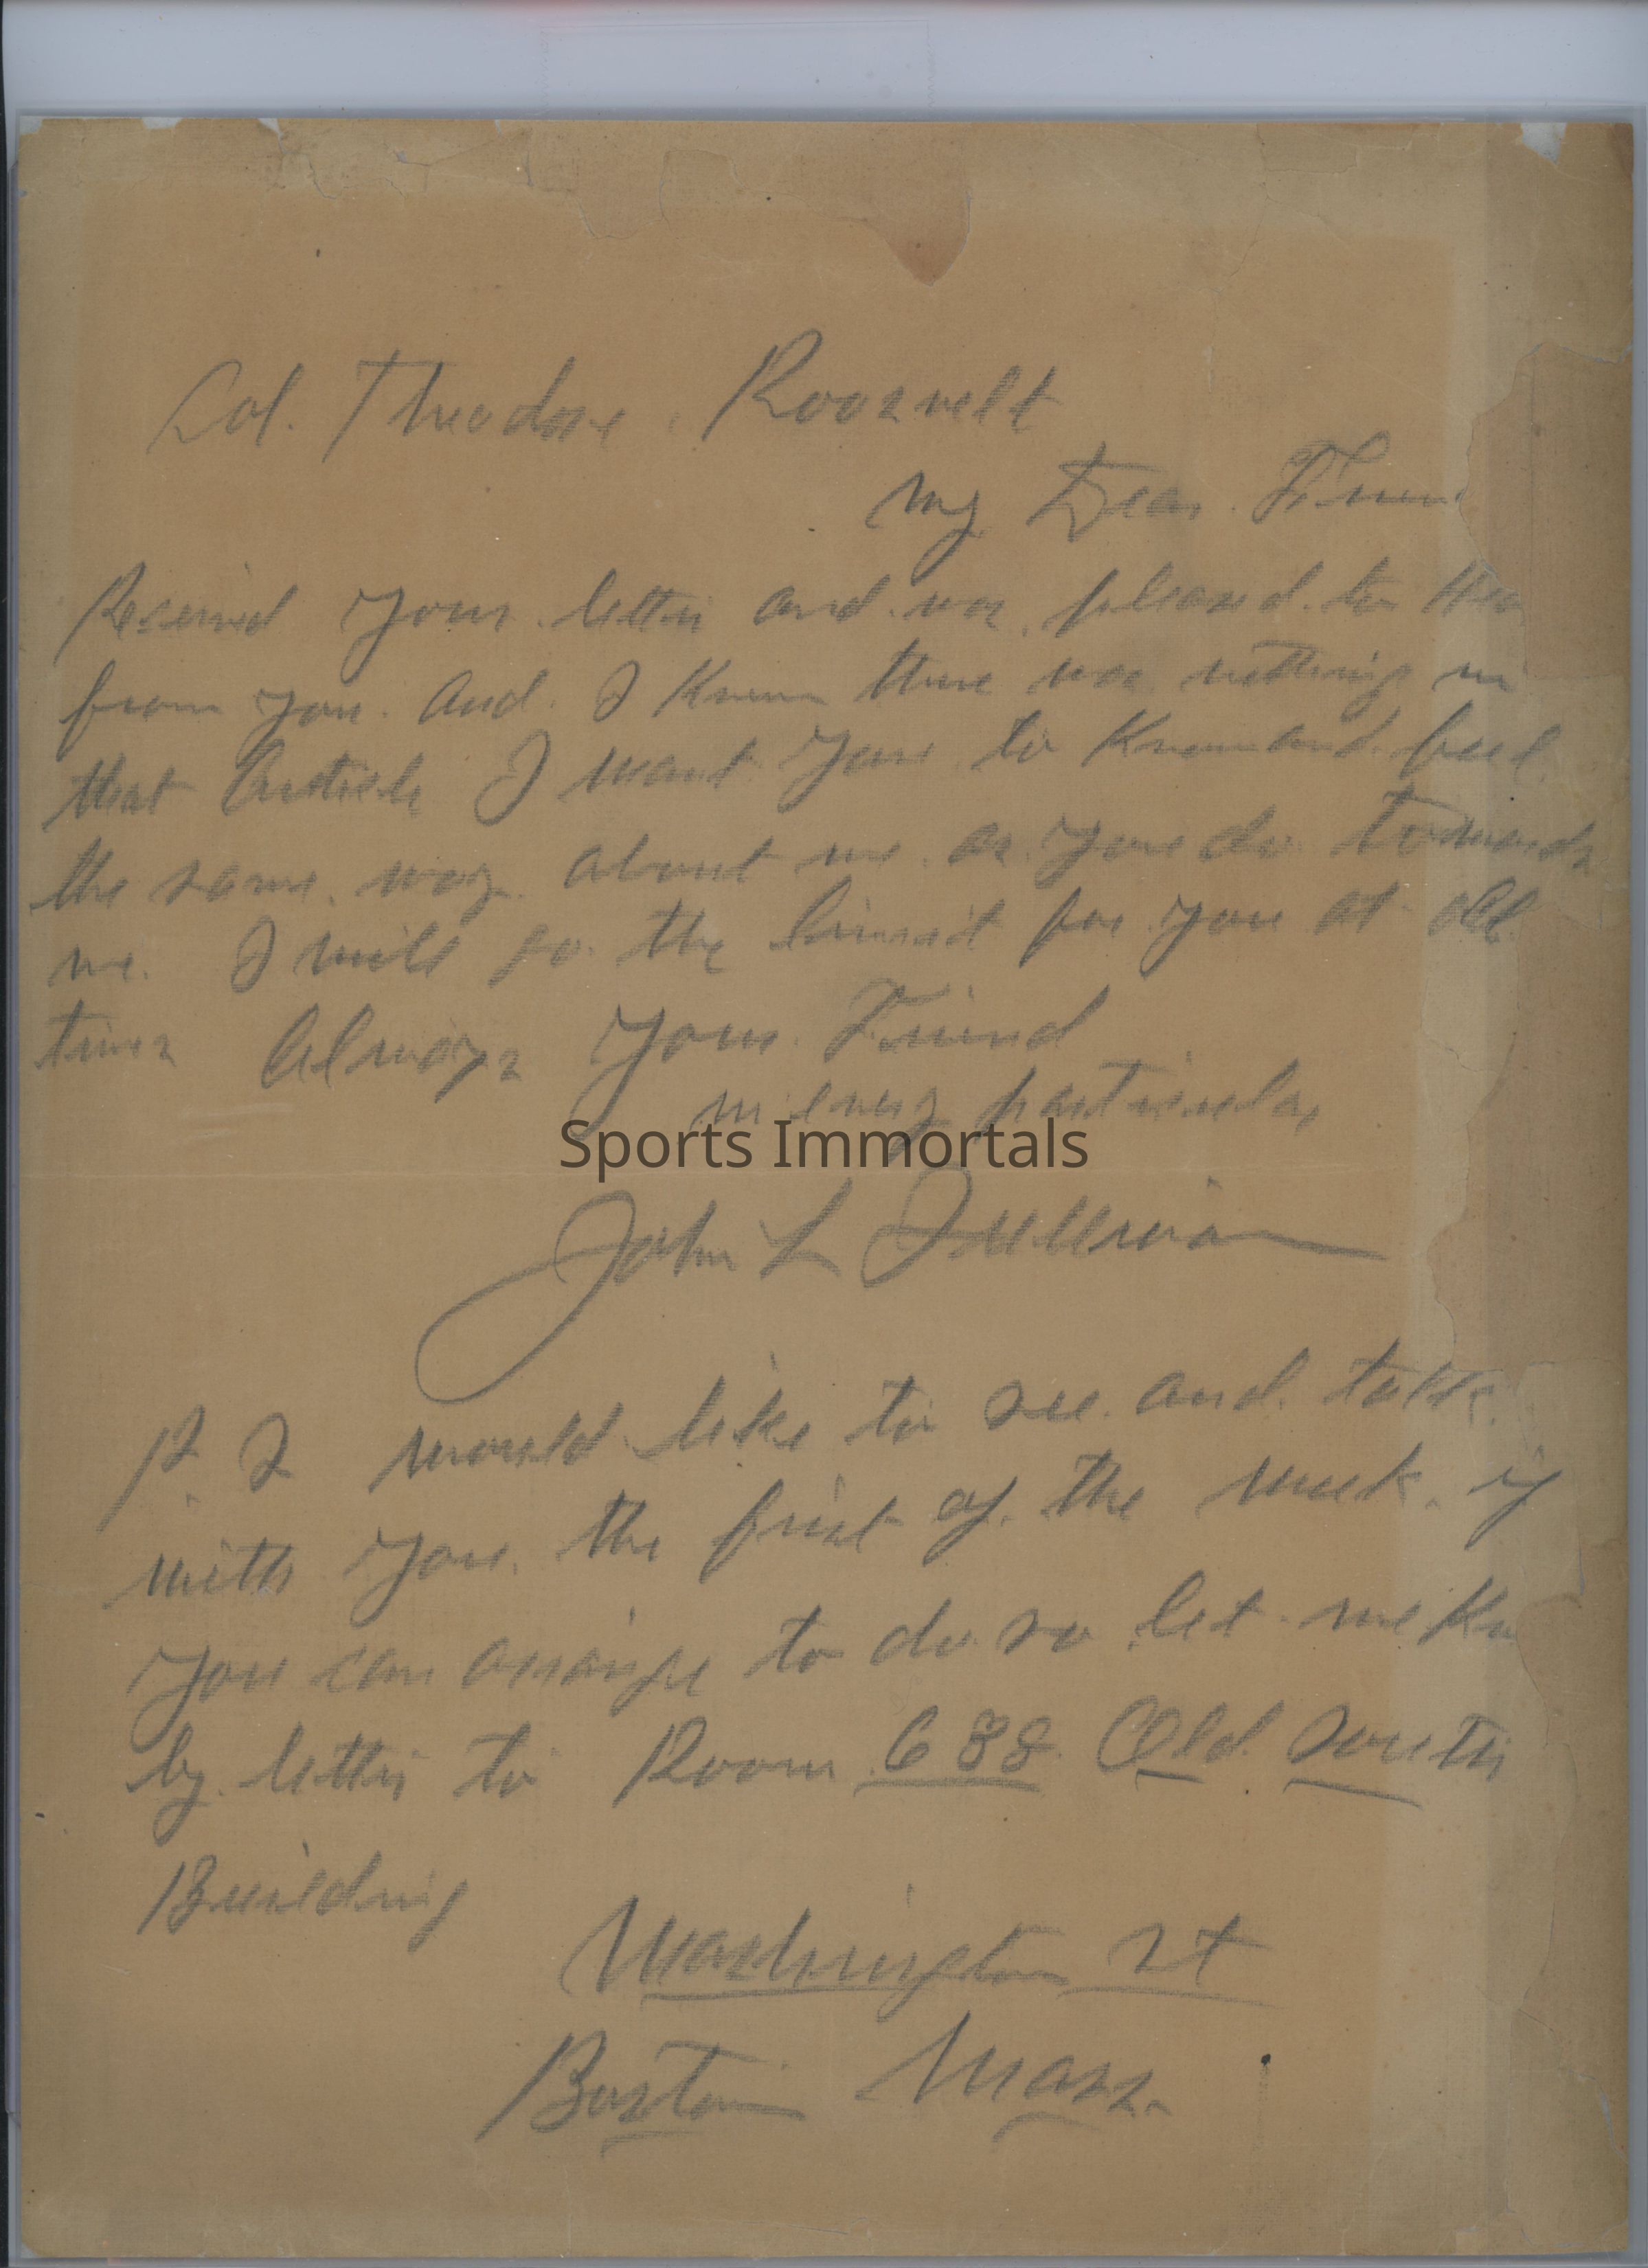 Col. Theodore Roosvelt
My Dear Frien
Received your letter and was pleased to Hea
from you. And I Know there was nothing in
that Article I want you to Know and feel
the same way about me as you do towards
me. I will go the limit for you at all
times Always your Friend
in every particular
Sports Immortals
John L Sullivan
P S I would like to see and talk
with you the first of the week if
you can arrange to do so let me Kn
by letter to Room 638 Old South
Building
Washington St
Boston Mass.